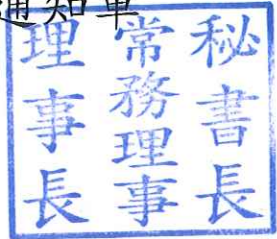 通知單
秘書長
常務理事
理事長